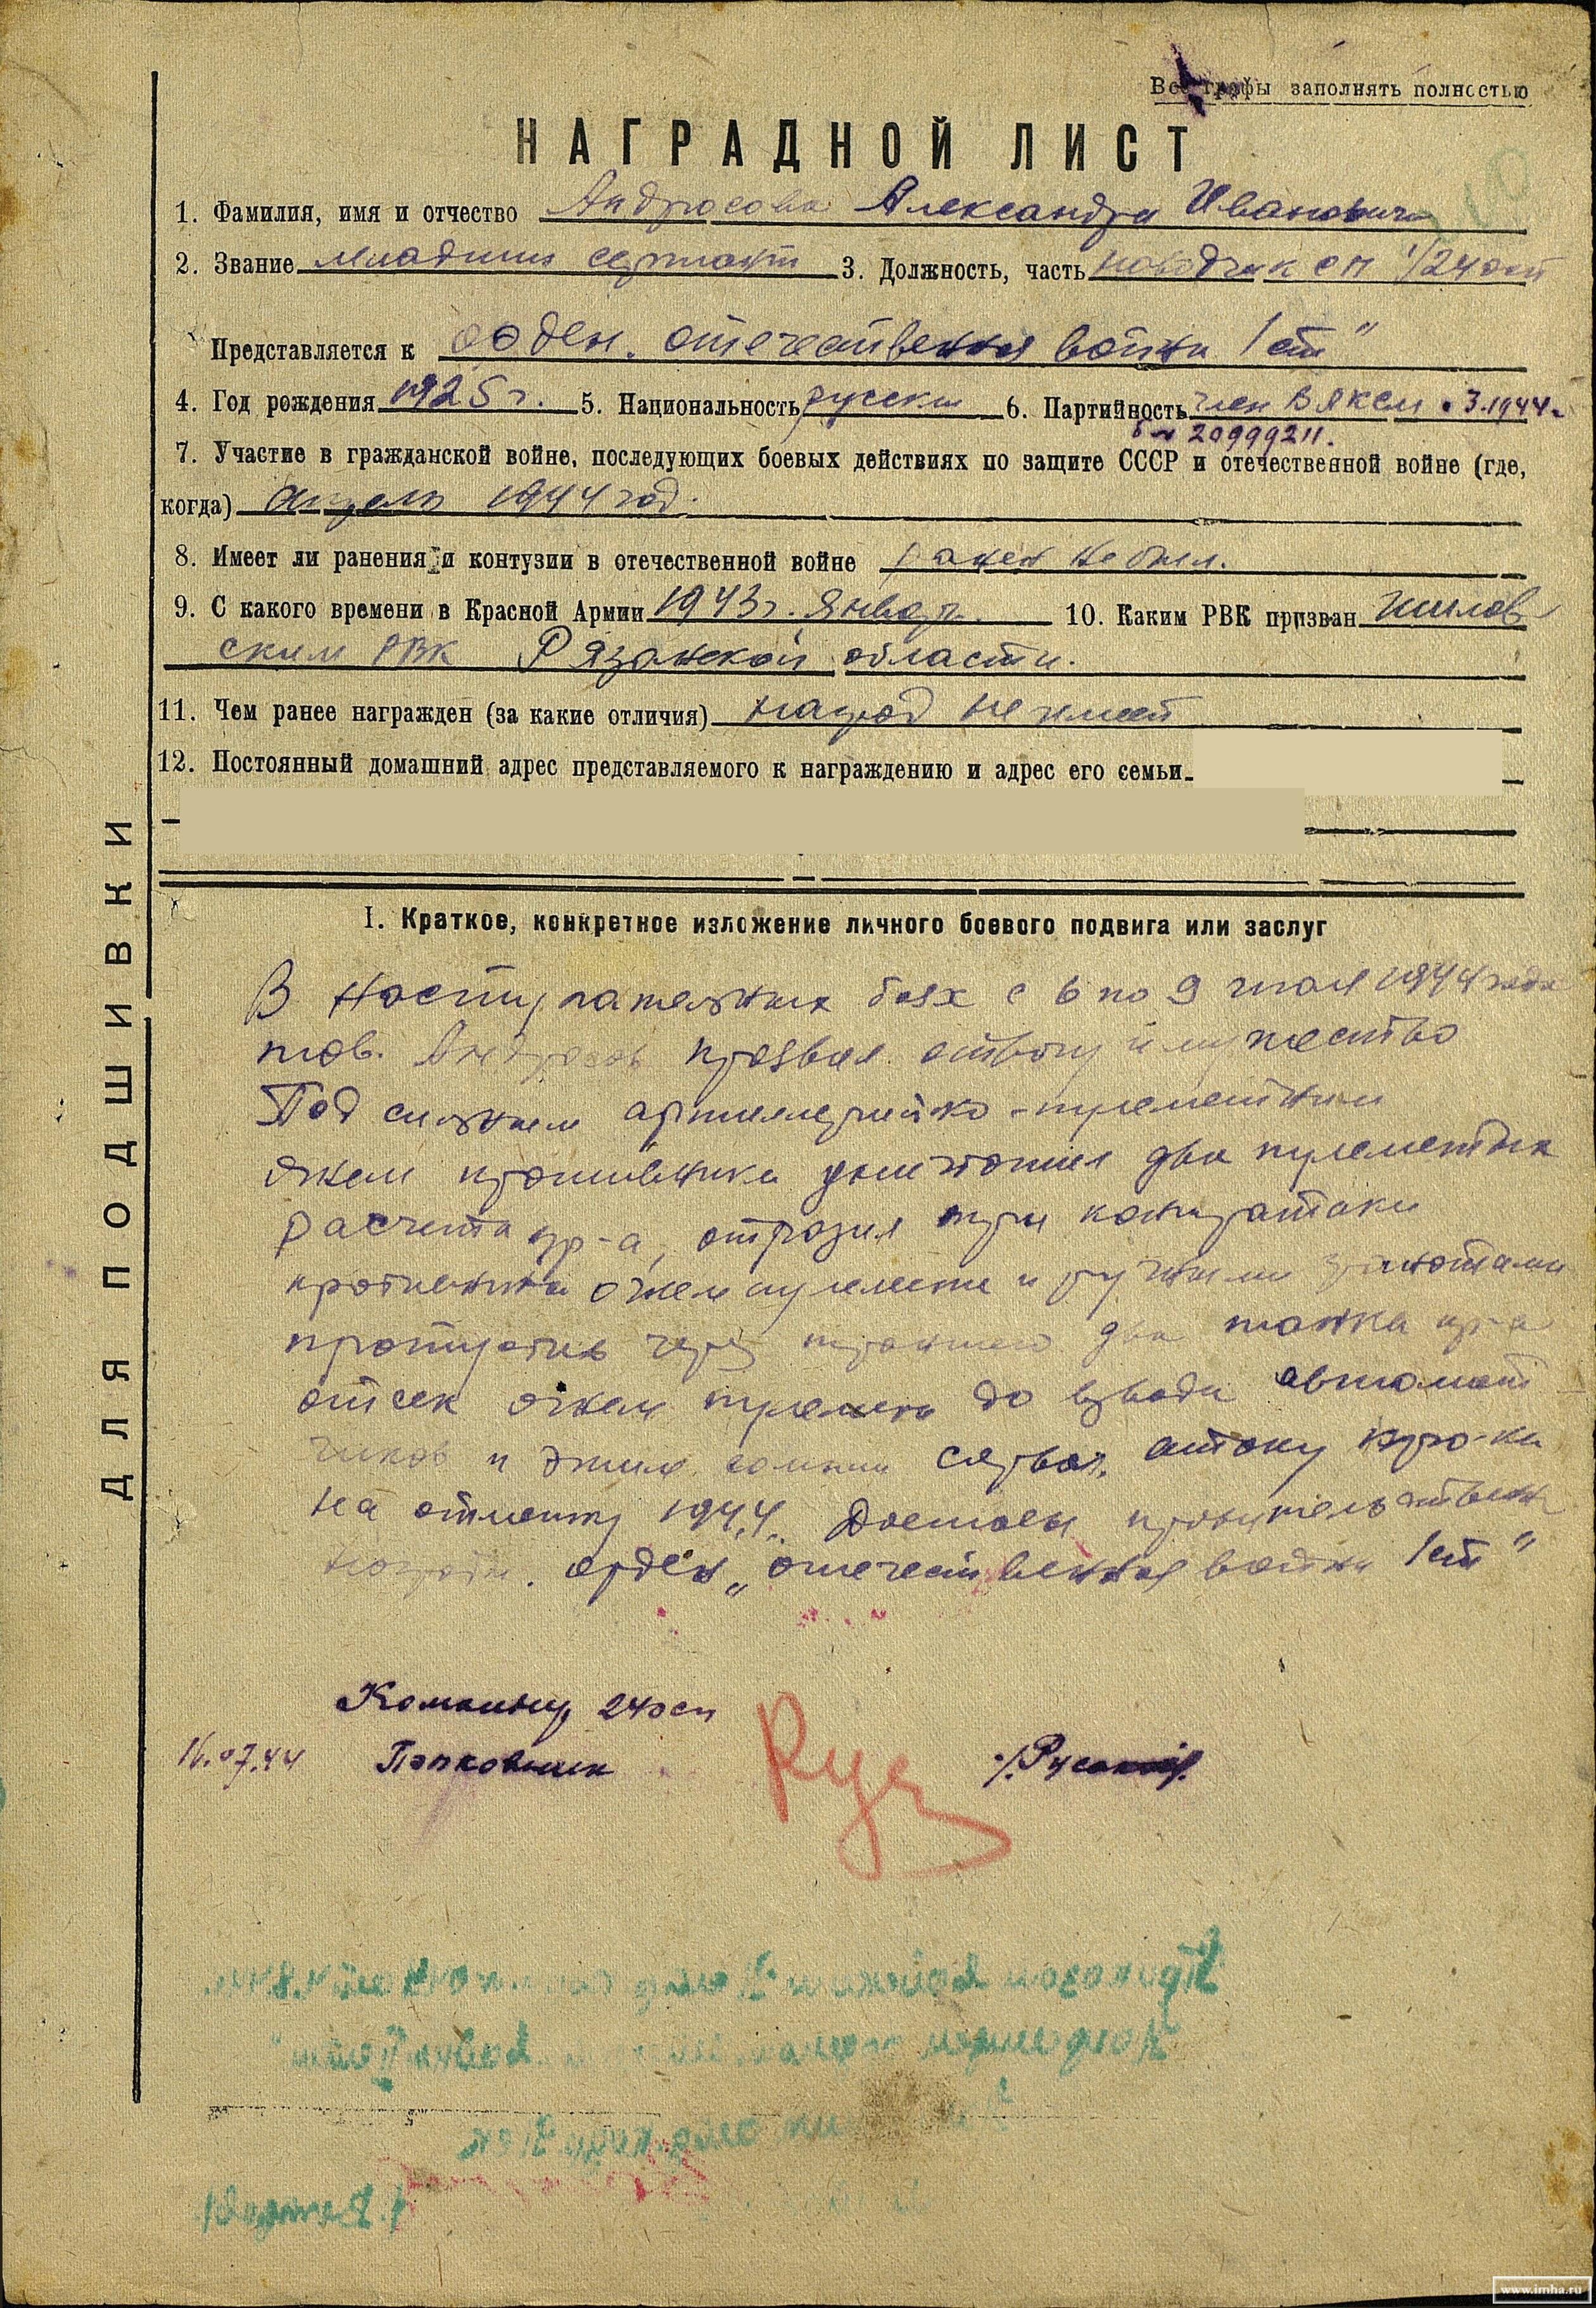 Все графы заполнять полностью
НАГРАДНОЙ ЛИСТ
1. Фамилия, имя и отчество Андросова Александра Ивановича
2. Звание младший сержант 3. Должность, часть наводчик СП 1/24
Представляется к орден. отечественная война 1 ст"
4. Год рождения 1925 г. 5. Национальность русский 6. Партийность член ВЛКСМ с 3.1944 г.
б № 20999211.
7. Участие в гражданской войне, последующих боевых действиях по защите СССР и отечественной войне (где,
когда) апрель 1944 год.
8. Имеет ли ранения и контузии в отечественной войне ранен не был.
9. С какого времени в Красной Армии 1943 г. январь. 10. Каким РВК призван Шилов
ским РВК Рязанской области.
11. Чем ранее награжден (за какие отличия) наград не имеет
12. Постоянный домашний адрес представляемого к награждению и адрес его семьи
ДЛЯ ПОДШИВКИ
I. Краткое, конкретное изложение личного боевого подвига или заслуг
В наступательных боях с 6 по 9 июля 1944 года
тов. Андросов проявил отвагу и мужество
Под сильным артиллерийско-пулеметным
огнем противника уничтожил два пулеметных
расчета пр-а, отразил три контратаки
противника огнем пулемета и ручными гранатами
пропустив через траншею два танка пр-а
отсек огнем пулемета до взвода автомат
чиков и этим самым сорвал атаку пр-ка
на отметку 194,4. Достоин правительствен
награды. орден „отечественная война 1 ст"
Командир 24 осп
16.07.44 Полковник /Русаков/.
Рус
www.imha.ru